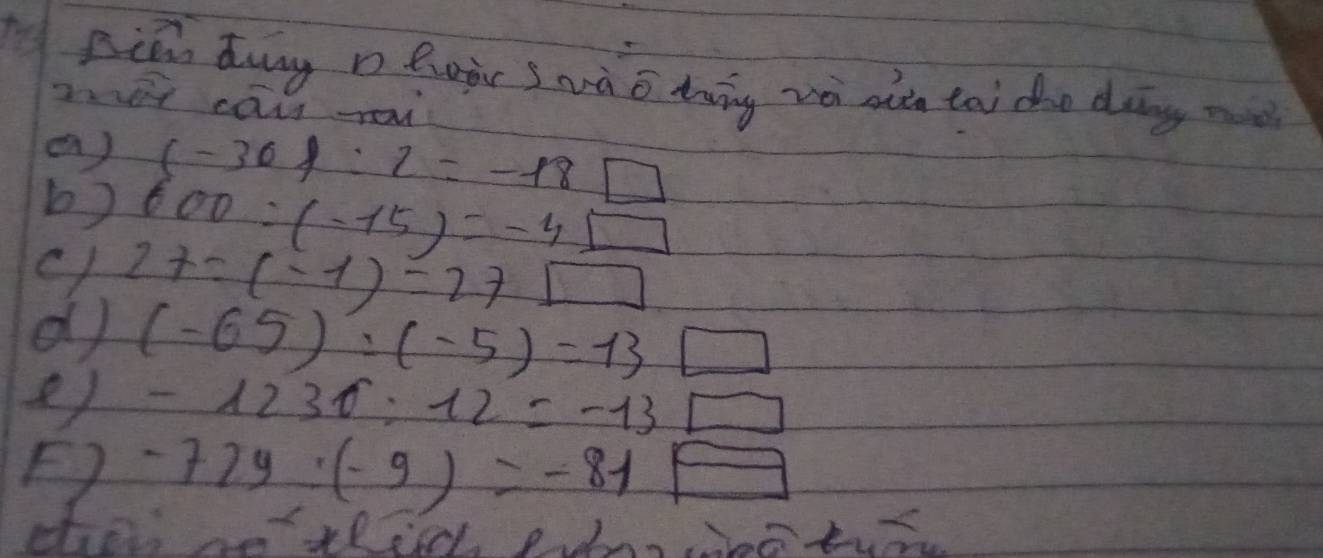 Điền đúng D hoặc S vào ô trống và sửa lại cho đúng
câu sai
a) (-36) : 2 = -18
b) 600 : (-15) = -4
c) 27 : (-1) = 27
d) (-65) : (-5) = 13
e) - 1236 : 12 = -13
F) -729 : (-9) = -81
ô